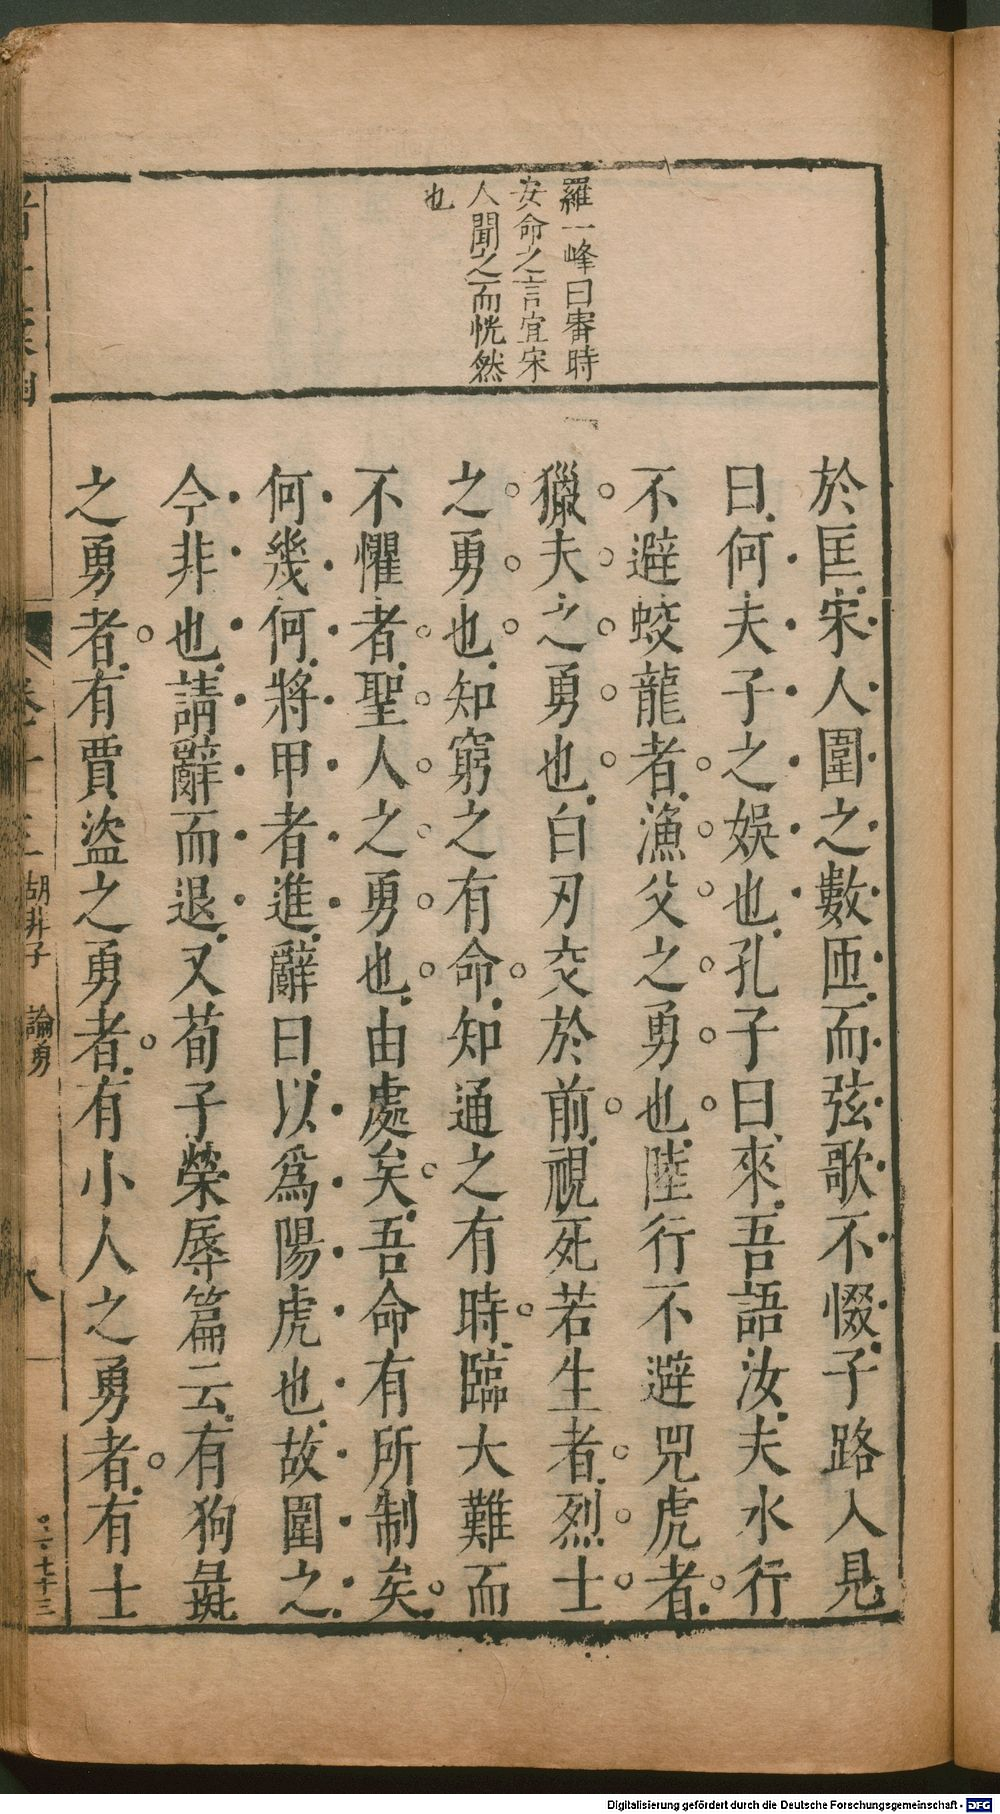 羅一峰曰審時
安命之言宜宋
人聞之而恍然
也
於匡宋人圍之數匝而弦歌不惙子路入見
曰何夫子之娛也孔子曰來吾語汝夫水行
不避蛟龍者漁父之勇也陸行不避兕虎者
獵夫之勇也白刃交於前視死若生者烈士
之勇也知窮之有命知通之有時臨大難而
不懼者聖人之勇也由處矣吾命有所制矣
何幾何將甲者進辭曰以爲陽虎也故圍之
今非也請辭而退又荀子榮辱篇云有狗彘
之勇者有賈盜之勇者有小人之勇者有士
胡非子 論勇
八
Digitalisierung gefördert durch die Deutsche Forschungsgemeinschaft - DFG